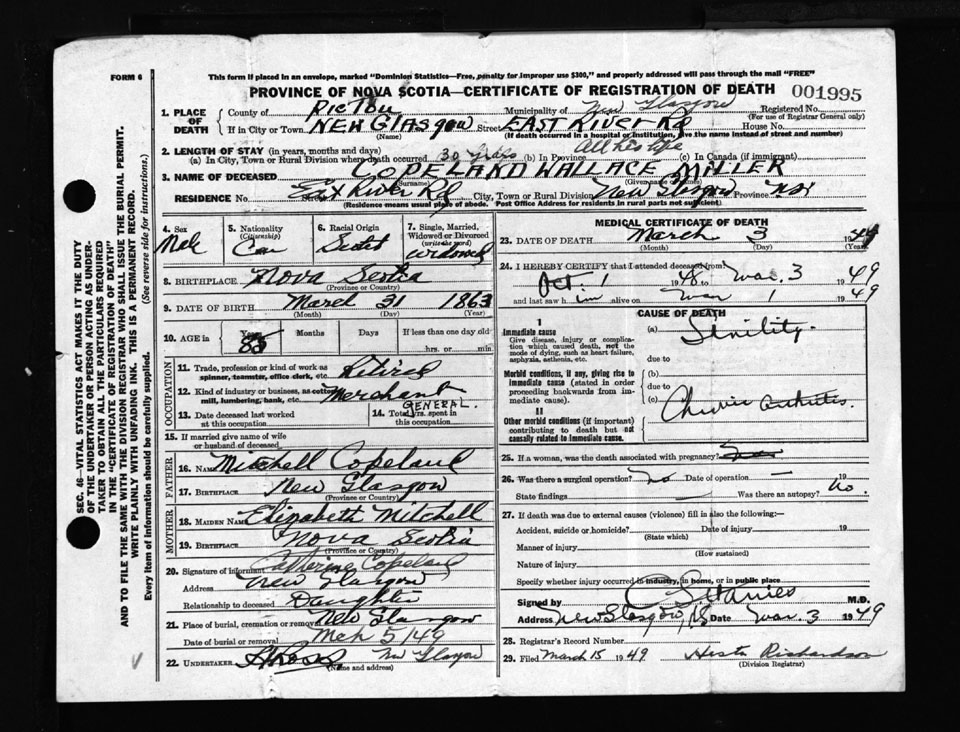 FORM 6
This form if placed in an envelope, marked "Dominion Statistics—Free, penalty for improper use $300," and properly addressed will pass through the mail "FREE"
PROVINCE OF NOVA SCOTIA—CERTIFICATE OF REGISTRATION OF DEATH 001995
1. PLACE OF DEATH County of PICTOU Municipality of New Glasgow Registered No.
(For use of Registrar General only)
If in City or Town NEW GLASGOW Street EAST RIVER RD House No.
(Name) (If death occurred in a hospital or institution, give the name instead of street and number)
2. LENGTH OF STAY (in years, months and days) All his life
(a) In City, Town or Rural Division where death occurred 30 years (b) In Province (c) In Canada (if immigrant)
3. NAME OF DECEASED COPELAND WALLACE MILLER
(Surname) (Given names)
RESIDENCE No. East River Rd City, Town or Rural Division New Glasgow Province N.S.
(Residence means usual place of abode. Post Office Address for residents in rural parts not sufficient)
SEC. 46—VITAL STATISTICS ACT MAKES IT THE DUTY
OF THE UNDERTAKER OR PERSON ACTING AS UNDER-
TAKER TO OBTAIN ALL THE PARTICULARS REQUIRED
IN THE "CERTIFICATE OF REGISTRATION OF DEATH"
AND TO FILE THE SAME WITH THE DIVISION REGISTRAR WHO SHALL ISSUE THE BURIAL PERMIT.
WRITE PLAINLY WITH UNFADING INK. THIS IS A PERMANENT RECORD.
Every item of information should be carefully supplied. (See reverse side for instructions.)
4. Sex 5. Nationality 6. Racial Origin 7. Single, Married,
(Citizenship) Widowed or Divorced
(write the word)
Male Can Scotch Widowed
8. BIRTHPLACE Nova Scotia
(Province or Country)
9. DATE OF BIRTH March 31 1863
(Month) (Day) (Year)
10. AGE in Years Months Days If less than one day old
85 hrs. or min.
OCCUPATION
11. Trade, profession or kind of work as
spinner, teamster, office clerk, etc. Retired
12. Kind of industry or business, as cotton
mill, lumbering, bank, etc. Merchant
GENERAL.
13. Date deceased last worked
at this occupation
14. Total yrs. spent in
this occupation
15. If married give name of wife
or husband of deceased
FATHER
16. Name Mitchell Copeland
17. BIRTHPLACE New Glasgow
(Province or Country)
MOTHER
18. MAIDEN NAME Elizabeth Mitchell
19. BIRTHPLACE Nova Scotia
(Province or Country)
20. Signature of informant Catherine Copeland
Address New Glasgow
Relationship to deceased Daughter
21. Place of burial, cremation or removal New Glasgow
Date of burial or removal Mch 5/49
22. UNDERTAKER New Glasgow
(Name and address)
MEDICAL CERTIFICATE OF DEATH
23. DATE OF DEATH March 3 1949
(Month) (Day) (Year)
24. I HEREBY CERTIFY that I attended deceased from:
Oct. 1 1948 to Mar. 3 1949
and last saw him alive on Mar 1 1949
CAUSE OF DEATH
I
Immediate cause
Give disease, injury or complication
which caused death, not the
mode of dying, such as heart failure,
asphyxia, asthenia, etc.
(a) Senility.
due to
Morbid conditions, if any, giving rise to
immediate cause (stated in order
proceeding backwards from immediate).
(b)
due to
(c) Chronic arthritis
II
Other morbid conditions (if important)
contributing to death but not
causally related to immediate cause.
25. If a woman, was the death associated with pregnancy?
26. Was there a surgical operation? no Date of operation — 19
State findings — Was there an autopsy? no.
27. If death was due to external causes (violence) fill in also the following:—
Accident, suicide or homicide? Date of injury 19
(State which)
Manner of injury
(How sustained)
Nature of injury
Specify whether injury occurred in industry, in home, or in public place
Signed by M.D.
Address New Glasgow NS Date Mar. 3 1949
28. Registrar's Record Number
29. Filed March 15 1949 Richardson
(Division Registrar)